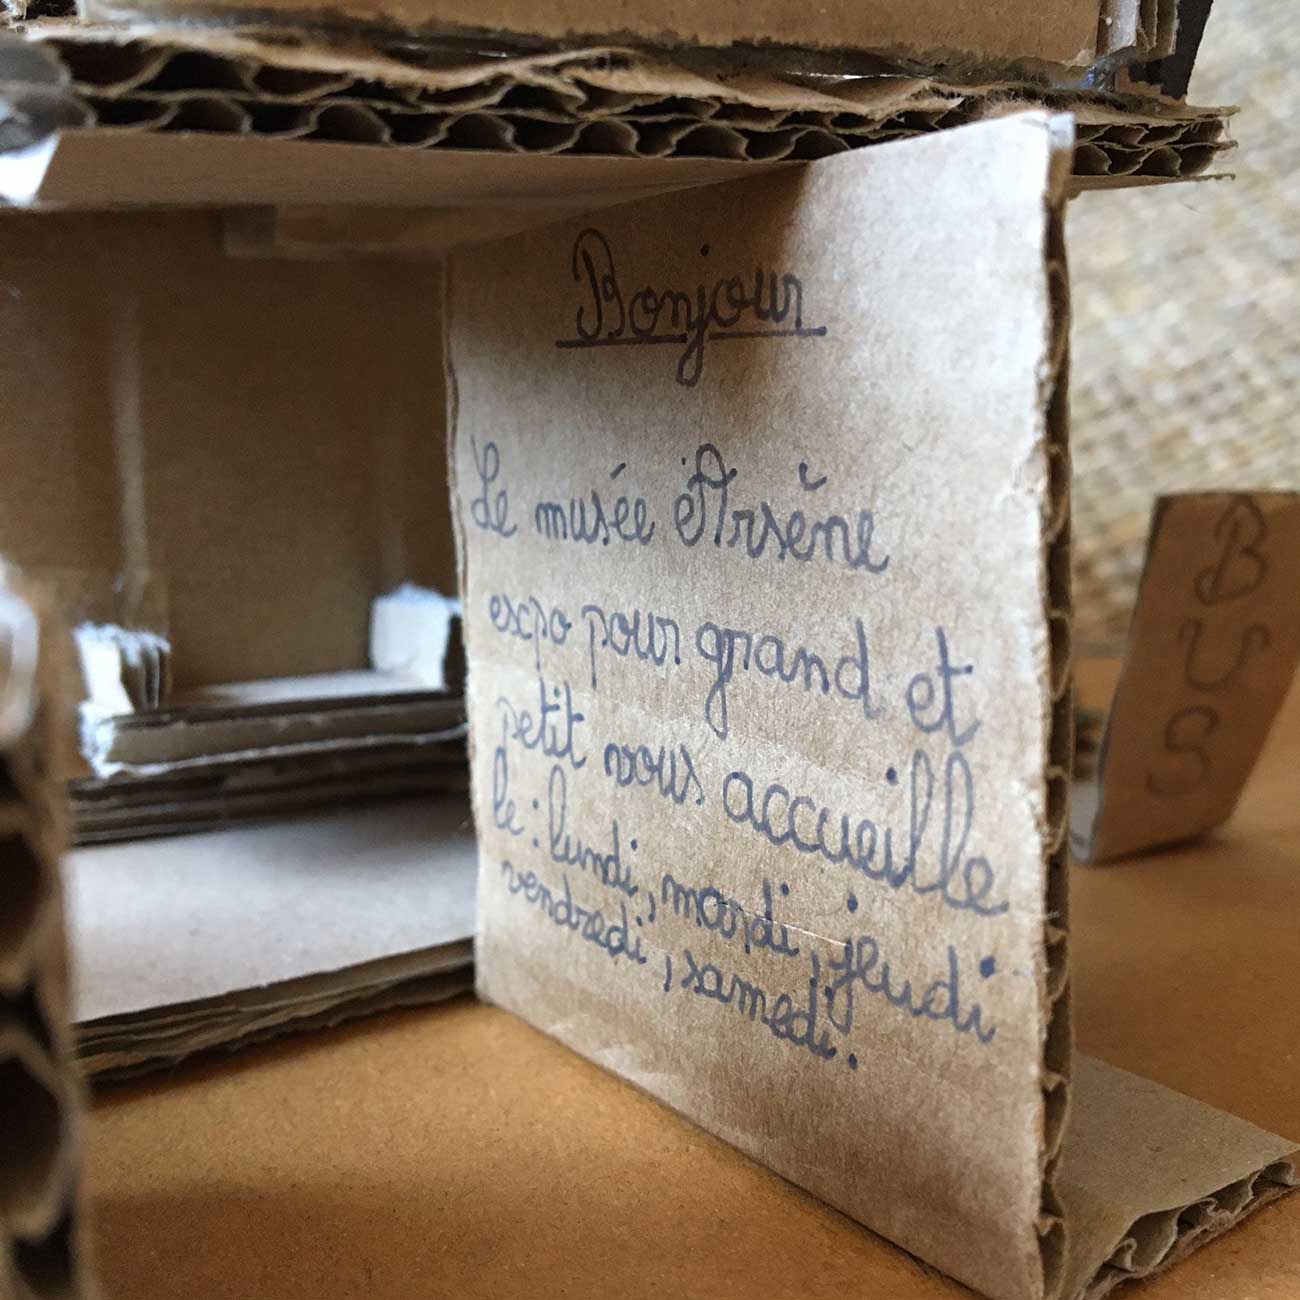 Bonjour
Le musée Arsène
expo pour grand et
petit vous accueille
le : lundi, mardi, jeudi
vendredi, samedi.
BUS